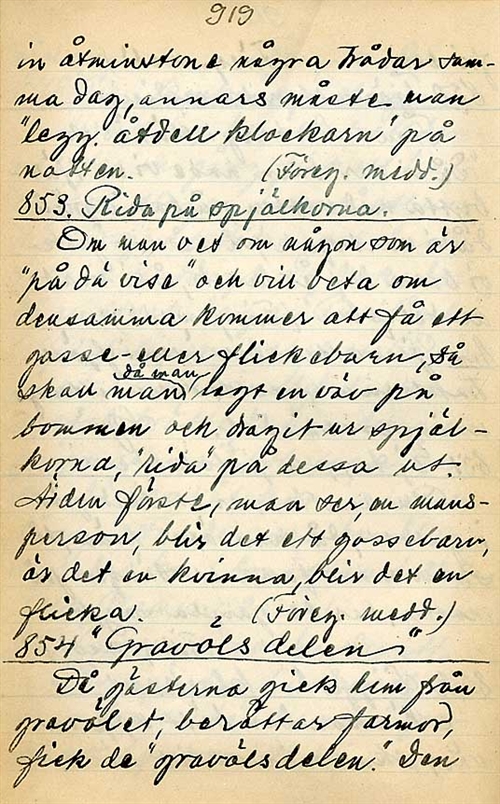 919
in åtminstone några trådar sam-
ma dag, annars måste man
"legg. åtdell klockarn" på
natten. (Föreg. medd.)
853. Rida på spjälkorna.
Om man vet om någon som är
"på dä vise" och vill veta om
densamma kommer att få ett
gosse- eller flickebarn, så
då man
skall man lagt en väv på
bommen och dragit ur spjäl-
korna, "rida" på dessa ut.
Är den förste, man ser, en mans-
person, blir det ett gossebarn,
är det en kvinna, blir det en
flicka. (Föreg. medd.)
854 "Gravölsdelen"
Då gästerna gick hem från
gravölet, berättar farmor,
fick de "gravölsdelen." Den